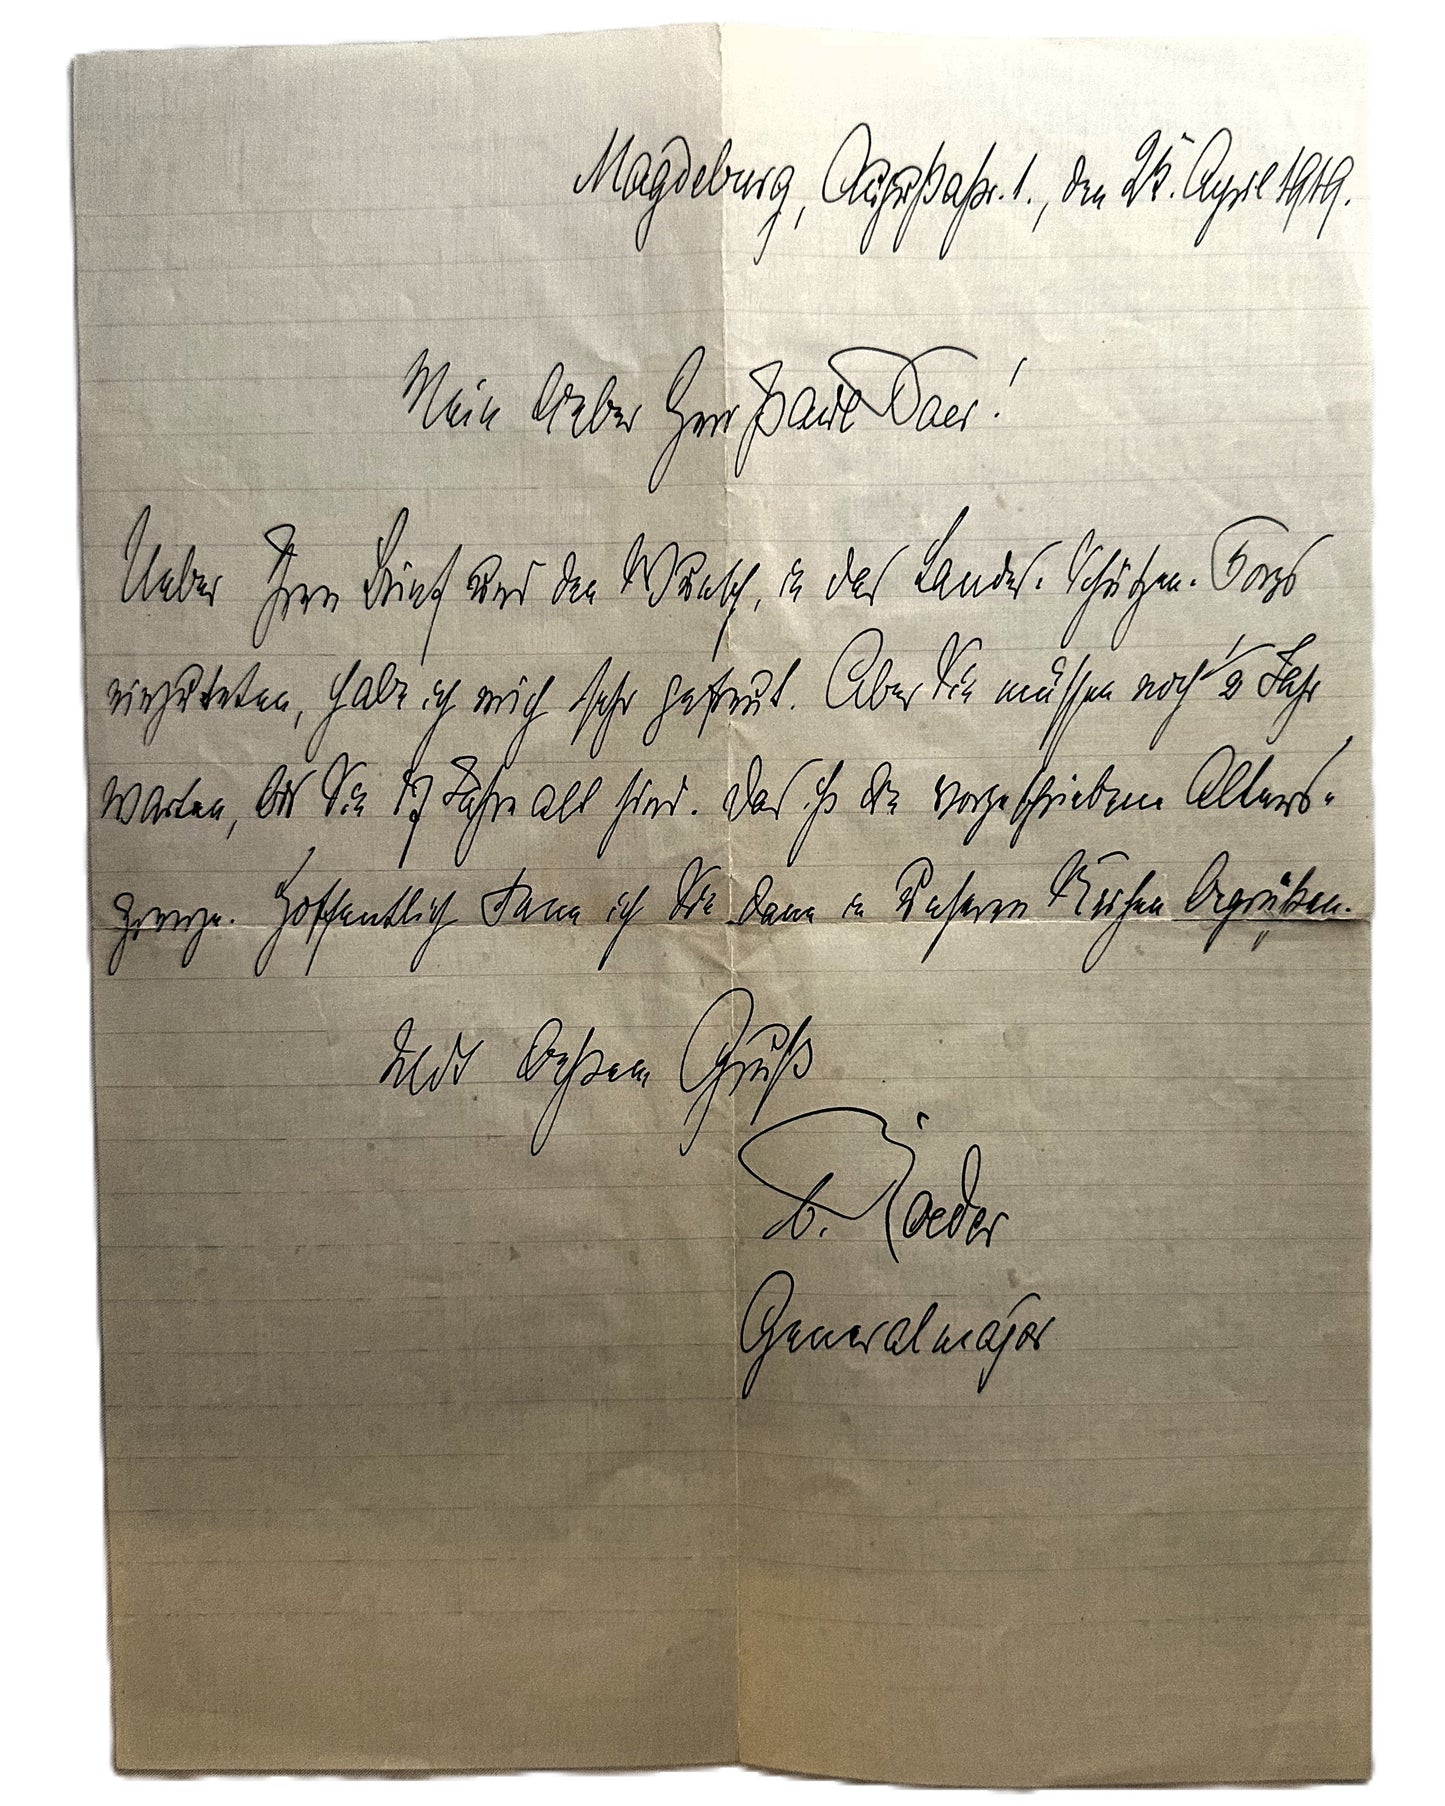 Magdeburg, Augustastr. 1., den 25. April 1919.
Mein lieber Herr Paul
Ueber Ihren Brief und den Wunsch, in das Landes-Schützen-Corps
einzutreten, habe ich mich sehr gefreut. Aber Sie müssen noch 1/2 Jahr
warten, bis Sie 17 Jahre alt sind. Das ist die vorgeschriebene Alters-
grenze. Hoffentlich kann ich Sie dann in unseren Reihen begrüßen.
Mit bestem Gruß
v. Roeder
Generalmajor